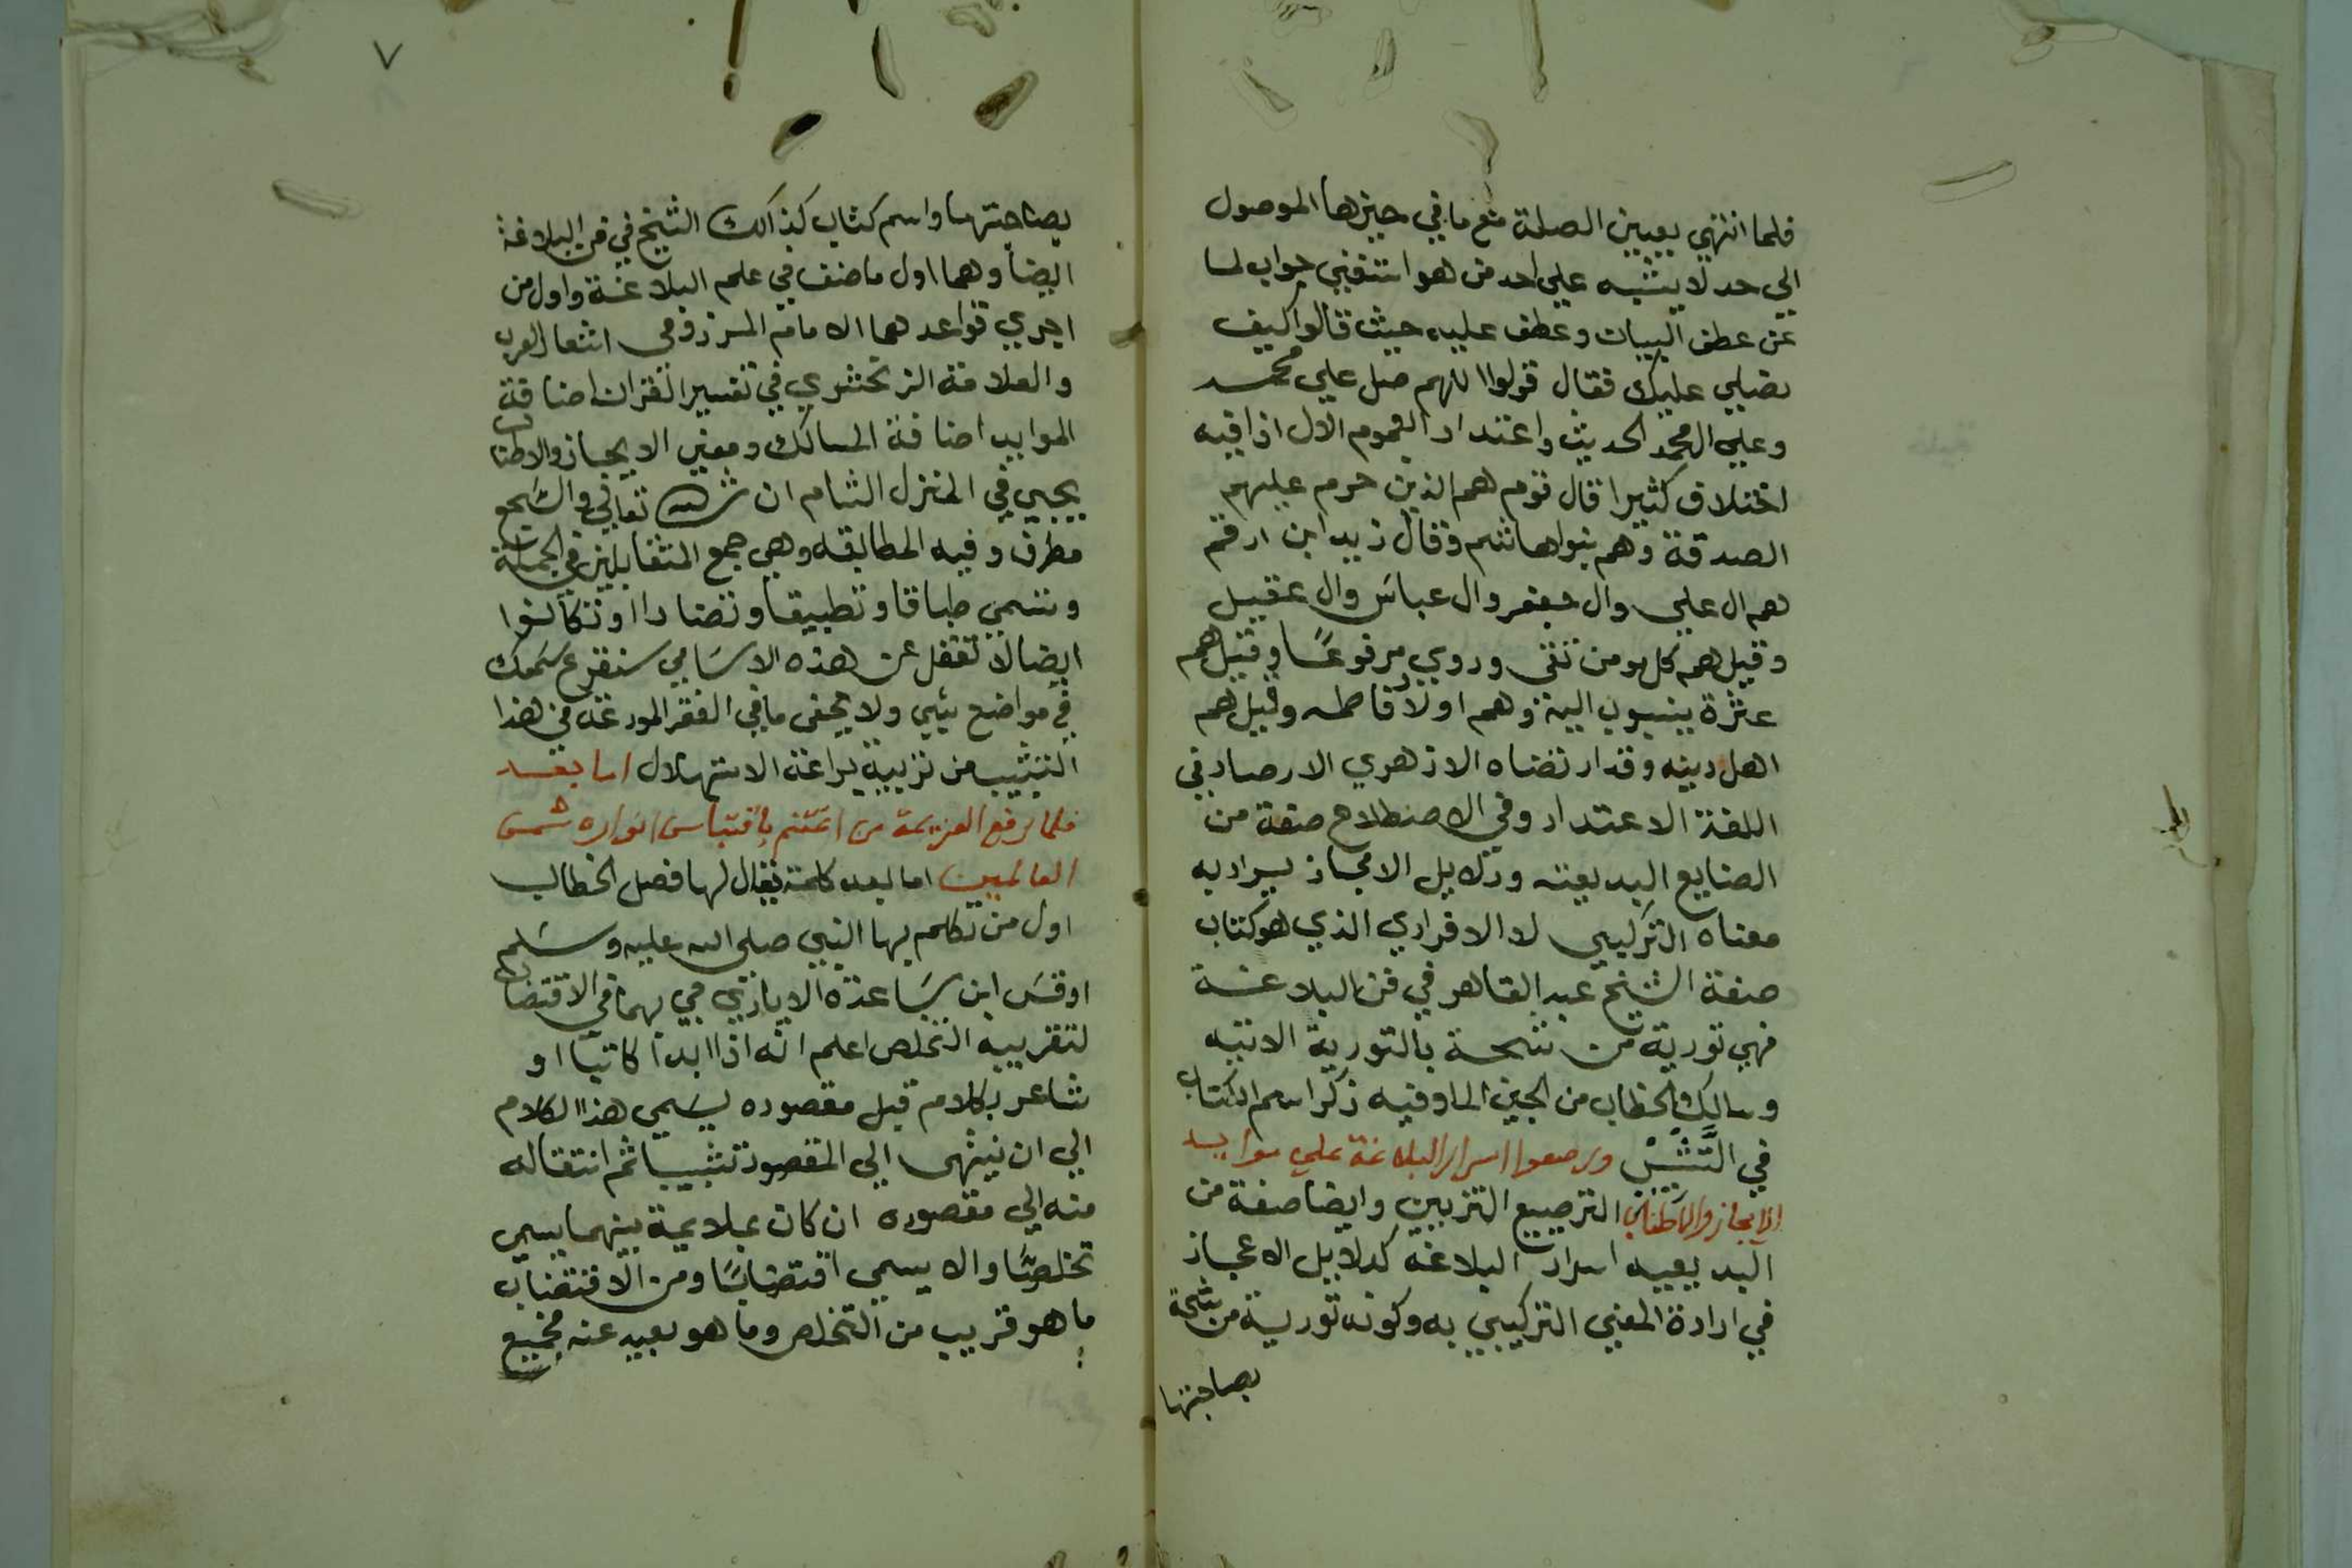 فلما انتهي بعيين الصلة مع ما في حيزها الموصول
الي حد لا يشبه علي احد من هو استغني جواب لما
عن عطف البيان وعطف عليه حيث قالوا كيف
نصلي عليك فقال قولوا اللهم صل علي محمد
وعلي ال محمد الحديث واعتداد العموم الال اذا فيه
اختلاف كثير اقال قوم هم الذين حرم عليهم
الصدقة وهم بنوا هاشم وقال زيد ابن ارقم
هم ال علي وال جعفر وال عباس وال عقيل
وقيل هم كل مومن تقى وروي مرفوعًا وقيل هم
عترة ينسبون اليه وهم اولاد فاطمه وقيل هم
اهل دينه وقد ارتضاه الازهري الارصاد في
اللغة الاعتداد وفي الاصطلاح صنعة من
الصنايع البديعته ودلايل الامجاز يراد به
معناه التركيبي لا الافرادي الذي هو كتاب
صنفة الشيخ عبد القاهر في فن البلاغة
فهي تورية من شحة بالتورية الاتيه
وسالك الخطاب من الجين الما وفيه ذكر اسم الكتاب
في التَّشَبُّبْ ورصعوا اسرار البلاغة علي موايد
الايجاز والاطناب الترصيع التزيين وايضا صنعة من
البديعيه اسرار البلاغه كدلايل الاعجاز
في ارادة المعني التركيبي به وكونه تورية من شحة
بصاحبتها
٧
بصاحبتها واسم كتاب كذالك الشيخ في فن البلاغة
ايضا وهما اول ما صنف في علم البلاغة واول من
اجري قواعدهما الامام المرزوقي اشعار العرب
والعلامة الزمخشري في تفسير القران اضافة
الموايد اضافة المسالك ومعني الايجاز والاطناب
يجيي في المنزل الثام ان شا الله تعالي والسَجع
مطرف وفيه المطابقه وهي جمع المتقابلين في الجملة
وتسمي طباقا وتطبيقا وتضادا او تكافوا
ايضا لا تغفل عن هذه الاسَامي سنقرع سَمعك
في مواضع شيي ولا يخفى ما في الفقر المورغه في هذا
التشبيب من تزيينة براعة الاستهلال اما بعد
فلما رفع العزيمة من اغتنم باقتباس انواره شمس
العالمين اما بعد كلمة يقال لها فصل الخطاب
اول من تكلم بها النبي صلى الله عليه وسَلم
اوقسَ ابن سَاعدة الاياذي جي بهما في الاقتضاب
لتقريبه التخلص اعلم انه اذا ابدا كاتبًا او
شاعر بكلام قبل مقصوده يسَمي هذا الكلام
الي ان ينتهى الي المقصود تشبيبا ثم انتقاله
منه الي مقصوده ان كان بملايمة بينهما يسمي
تخلصًا والا يسمي اقتضابًا ومن الاقتضاب
ما هو قريب من التخلص وما هو بعيد عنه فجميع